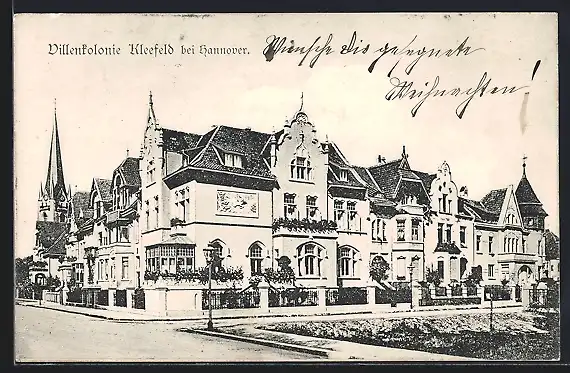 Villenkolonie Kleefeld bei Hannover.
Wünsche dis gesegnete
Weihnachten!